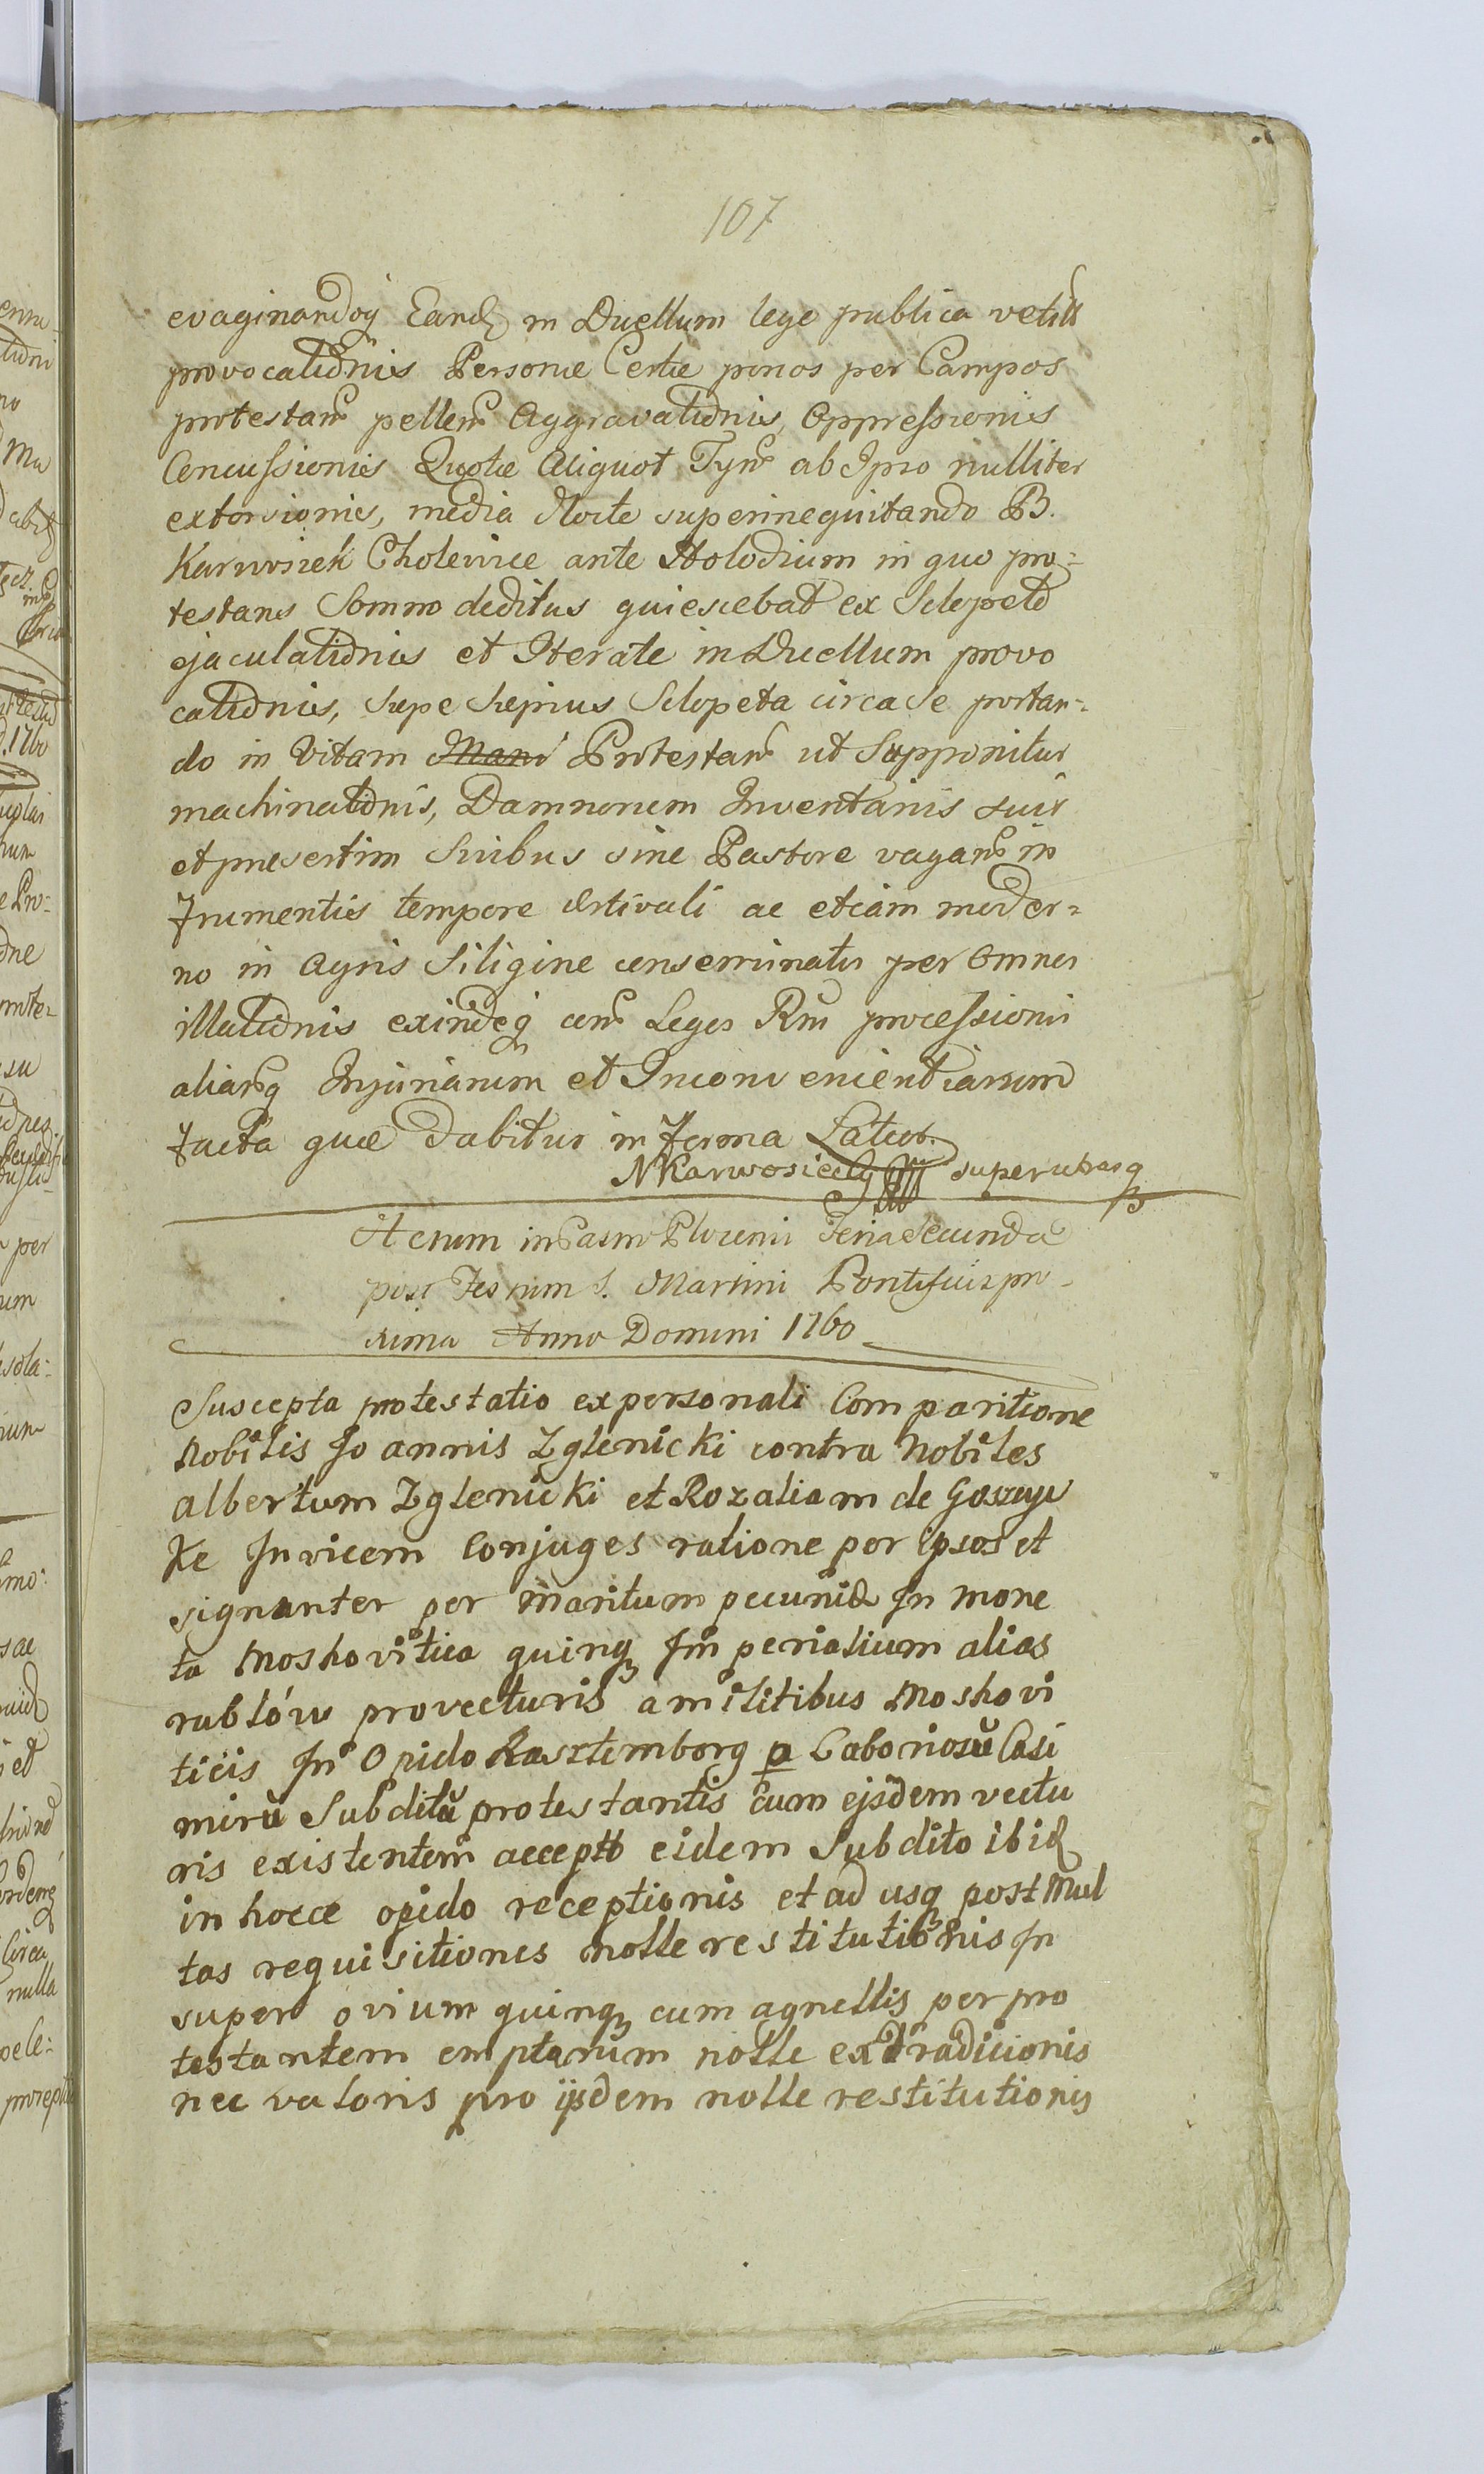 107
evaginandoq Eand in Duellum lege publica vetiti
provocationis Personæ Certæ penes per Campos
protestan pellen Aggravationis, Oppressionis
Concussionis Quotæ Aliquot Tyn ab Ipso nulliter
extorsionis, media Nocte superinequitando B.
Karwosiek Cholewice ante Holodium in quo pro-
testans Somno deditus quiescebat ex Sclopeto
ejaculationis et Iterate in Duellum provo
cationis, sæpe sæpius Sclopeta circa se portan-
do in Vitam Protestan ut Supponitur
machinationis, Damnorum Inventariis suis
et præsertim Suibus sine Pastore vagan in
Frumentis tempore æstivali ac etiam moder-
no in Agris Siligine conseminatis per Omnes
illationis exindeq con Leges Rni processionis
aliarq Injuriarum et Inconvenientiarum
Facta quæ Dabitur in Forma Latior.
NKarwosiecki super utrasq
Actum in Castro Plocensi Feria Secunda
post Festum S. Martini Pontificis pro-
xima Anno Domini 1760
Suscepta protestatio ex personali Comparitione
Nobilis Joannis Zglenicki contra Nobiles
Albertum Zglenicki et Rozaliam de Goszczyc
Ke Invicem Conjuges ratione per ipsos et
signanter per maritum pecunia In mone
ta Moskovitica quinq Imperialium alias
rublów provecturis a militibus Moskovi
ticis In Opido Rasztemborg a Labonosū Casi
mirū Subditū protestantis cum ejsdem vectu
ris existentem accepto eidem Subdito ibid
in hocce opido receptionis et ad usq post Mul
tas requisitiones nolle restitutionis In
super ovium quinq cum agnellis per pro
testantem emptarum nolle extradicionis
nec valoris pro ijsdem nolle restitutionis